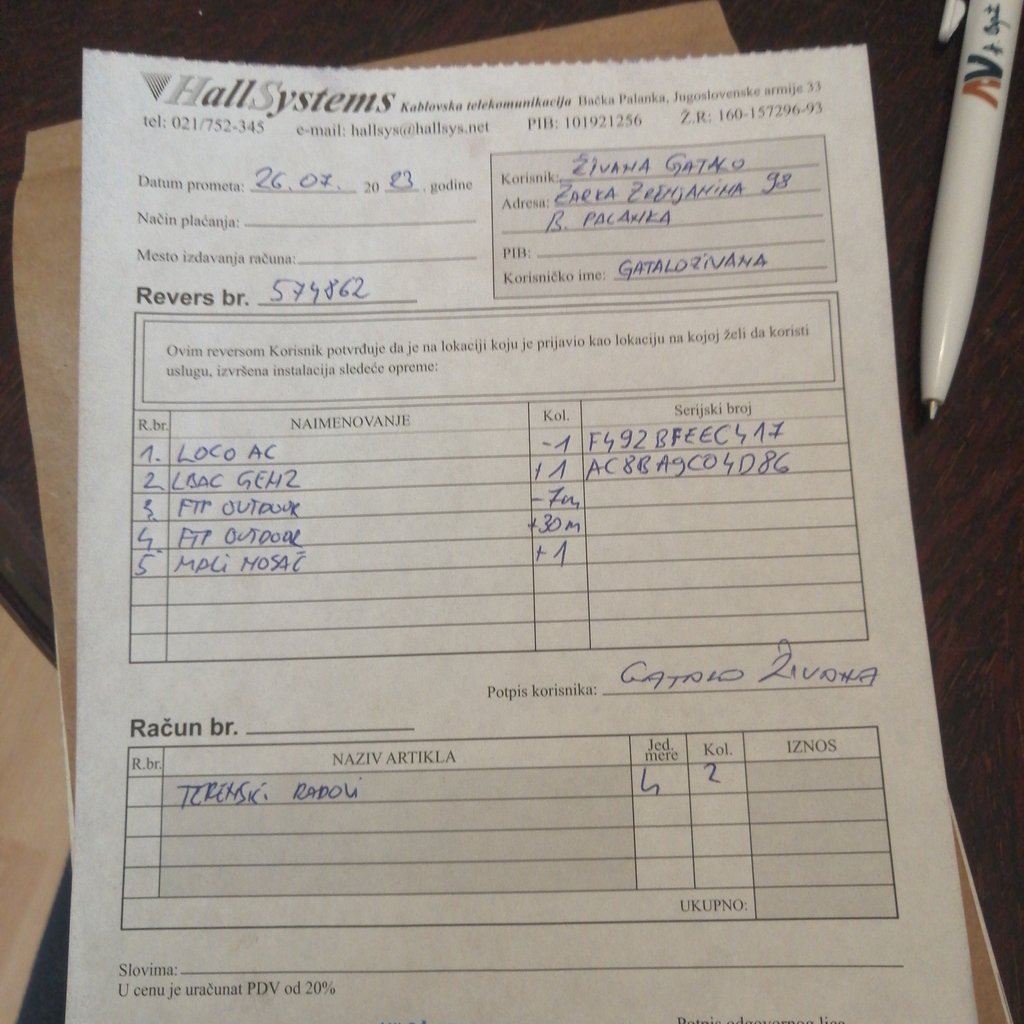 HallSystems Kablovska telekomunikacija Bačka Palanka, Jugoslovenske armije 33
tel: 021/752-345 e-mail: hallsys@hallsys.net PIB: 101921256 Ž.R: 160-157296-93
Datum prometa: 26.07. 20 23. godine
Način plaćanja:
Mesto izdavanja računa:
Korisnik: ŽIVANA GATALO
Adresa: ŽARKA ZRENJANINA 98
B. PALANKA
PIB:
Korisničko ime: GATALOZIVANA
Revers br. 574862
Ovim reversom Korisnik potvrđuje da je na lokaciji koju je prijavio kao lokaciju na kojoj želi da koristi
uslugu, izvršena instalacija sledeće opreme:
R.br. NAIMENOVANJE Kol. Serijski broj
1. LOCO AC -1 F492BFEEC417
2. LBAC GEN2 +1 AC8BA9C04D86
3. FTP OUTDOOR -7m
4. FTP OUTDOOR +30m
5 MALI NOSAČ +1
Potpis korisnika: GATALO ŽIVANA
Račun br.
R.br. NAZIV ARTIKLA Jed. mere Kol. IZNOS
TERENSKI RADOVI h 2
UKUPNO:
Slovima:
U cenu je uračunat PDV od 20%
Potpis odgovornog lica